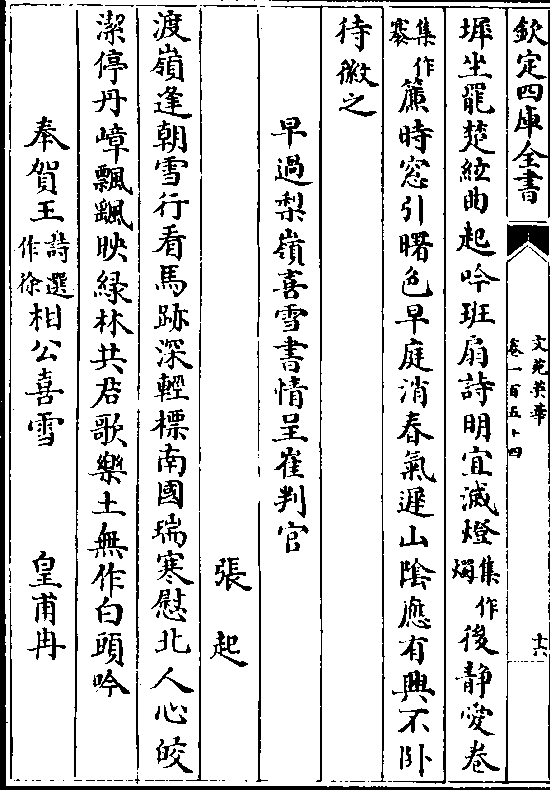 欽定四庫全書
文苑英華
卷一百五十四
十六
墀坐罷楚絃曲起吟班扇詩明宜滅燈集作燭後靜愛卷
集作褰簾時窓引曙色早庭消春氣遲山陰應有興不卧
待徽之
早過梨嶺喜雪書情呈崔判官
張起
渡嶺逢朝雪行看馬跡深輕標南國瑞寒慰北人心皎
潔停丹嶂飄颻映緑林共君歌樂土無作白頭吟
奉賀王詩選作徐相公喜雪 皇甫冉